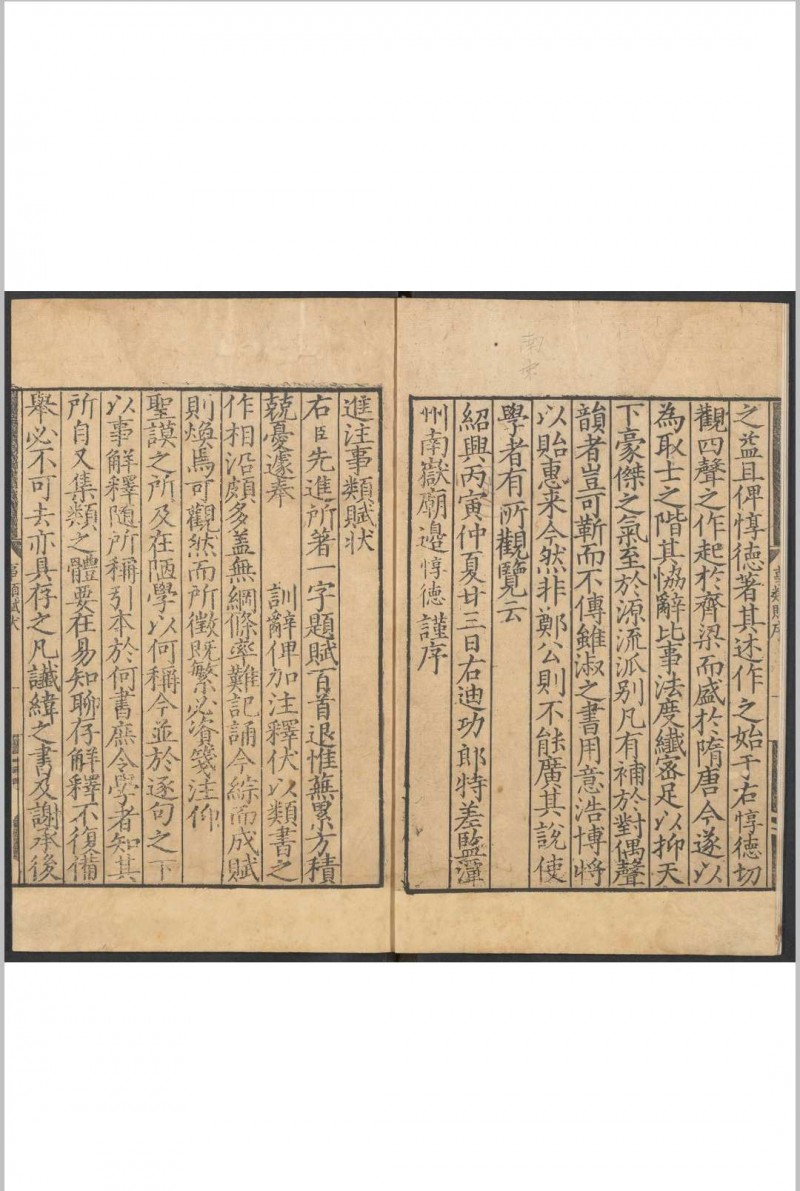 之益且俾惇德著其述作之始于右惇德切
觀四聲之作起於齊梁而盛於隋唐今遂以
為取士之階其恊辭比事法度纖宻足以抑天
下豪傑之氣至於源流派别凡有補於對偶聲
韻者豈可靳而不傳雖淑之書用意浩博將
以貽惠来今然非鄭公則不能廣其說使
學者有所觀覽云
紹興丙寅仲夏廿三日右迪功郎特差監潭
州南嶽廟邊惇德謹序
進注事類賦状
右臣先進所著一字題賦百首退惟蕪累方積
兢憂遽奉
訓辭俾加注釋伏以類書之
作相沿頗多盖無綱條率難記誦今綜而成賦
則煥焉可觀然而所徵既繁必資箋注仰
聖謨之所及在陋學以何稱今並於逐句之下
以事解釋随所稱引本於何書庶令學者知其
所自又集類之體要在易知聊存解釋不復備
舉必不可去亦具存之凡讖緯之書及謝承後
事類賦状